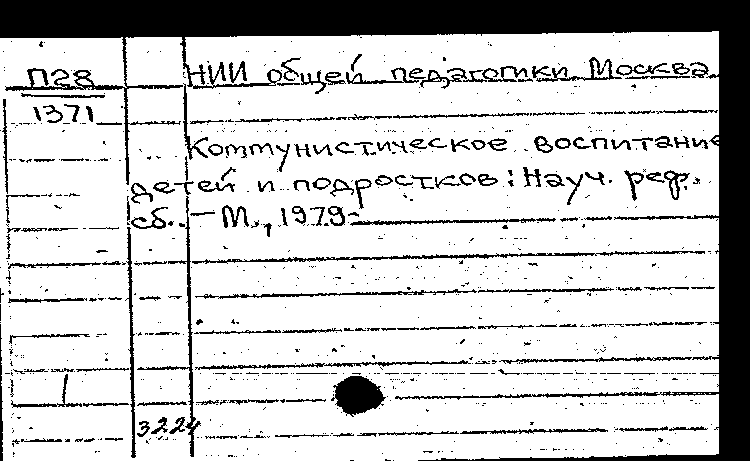 П28
1371
НИИ общей педагогики. Москва
Коммунистическое воспитание
детей и подростков: Науч. реф.
сб. – М., 1979-
1
3224